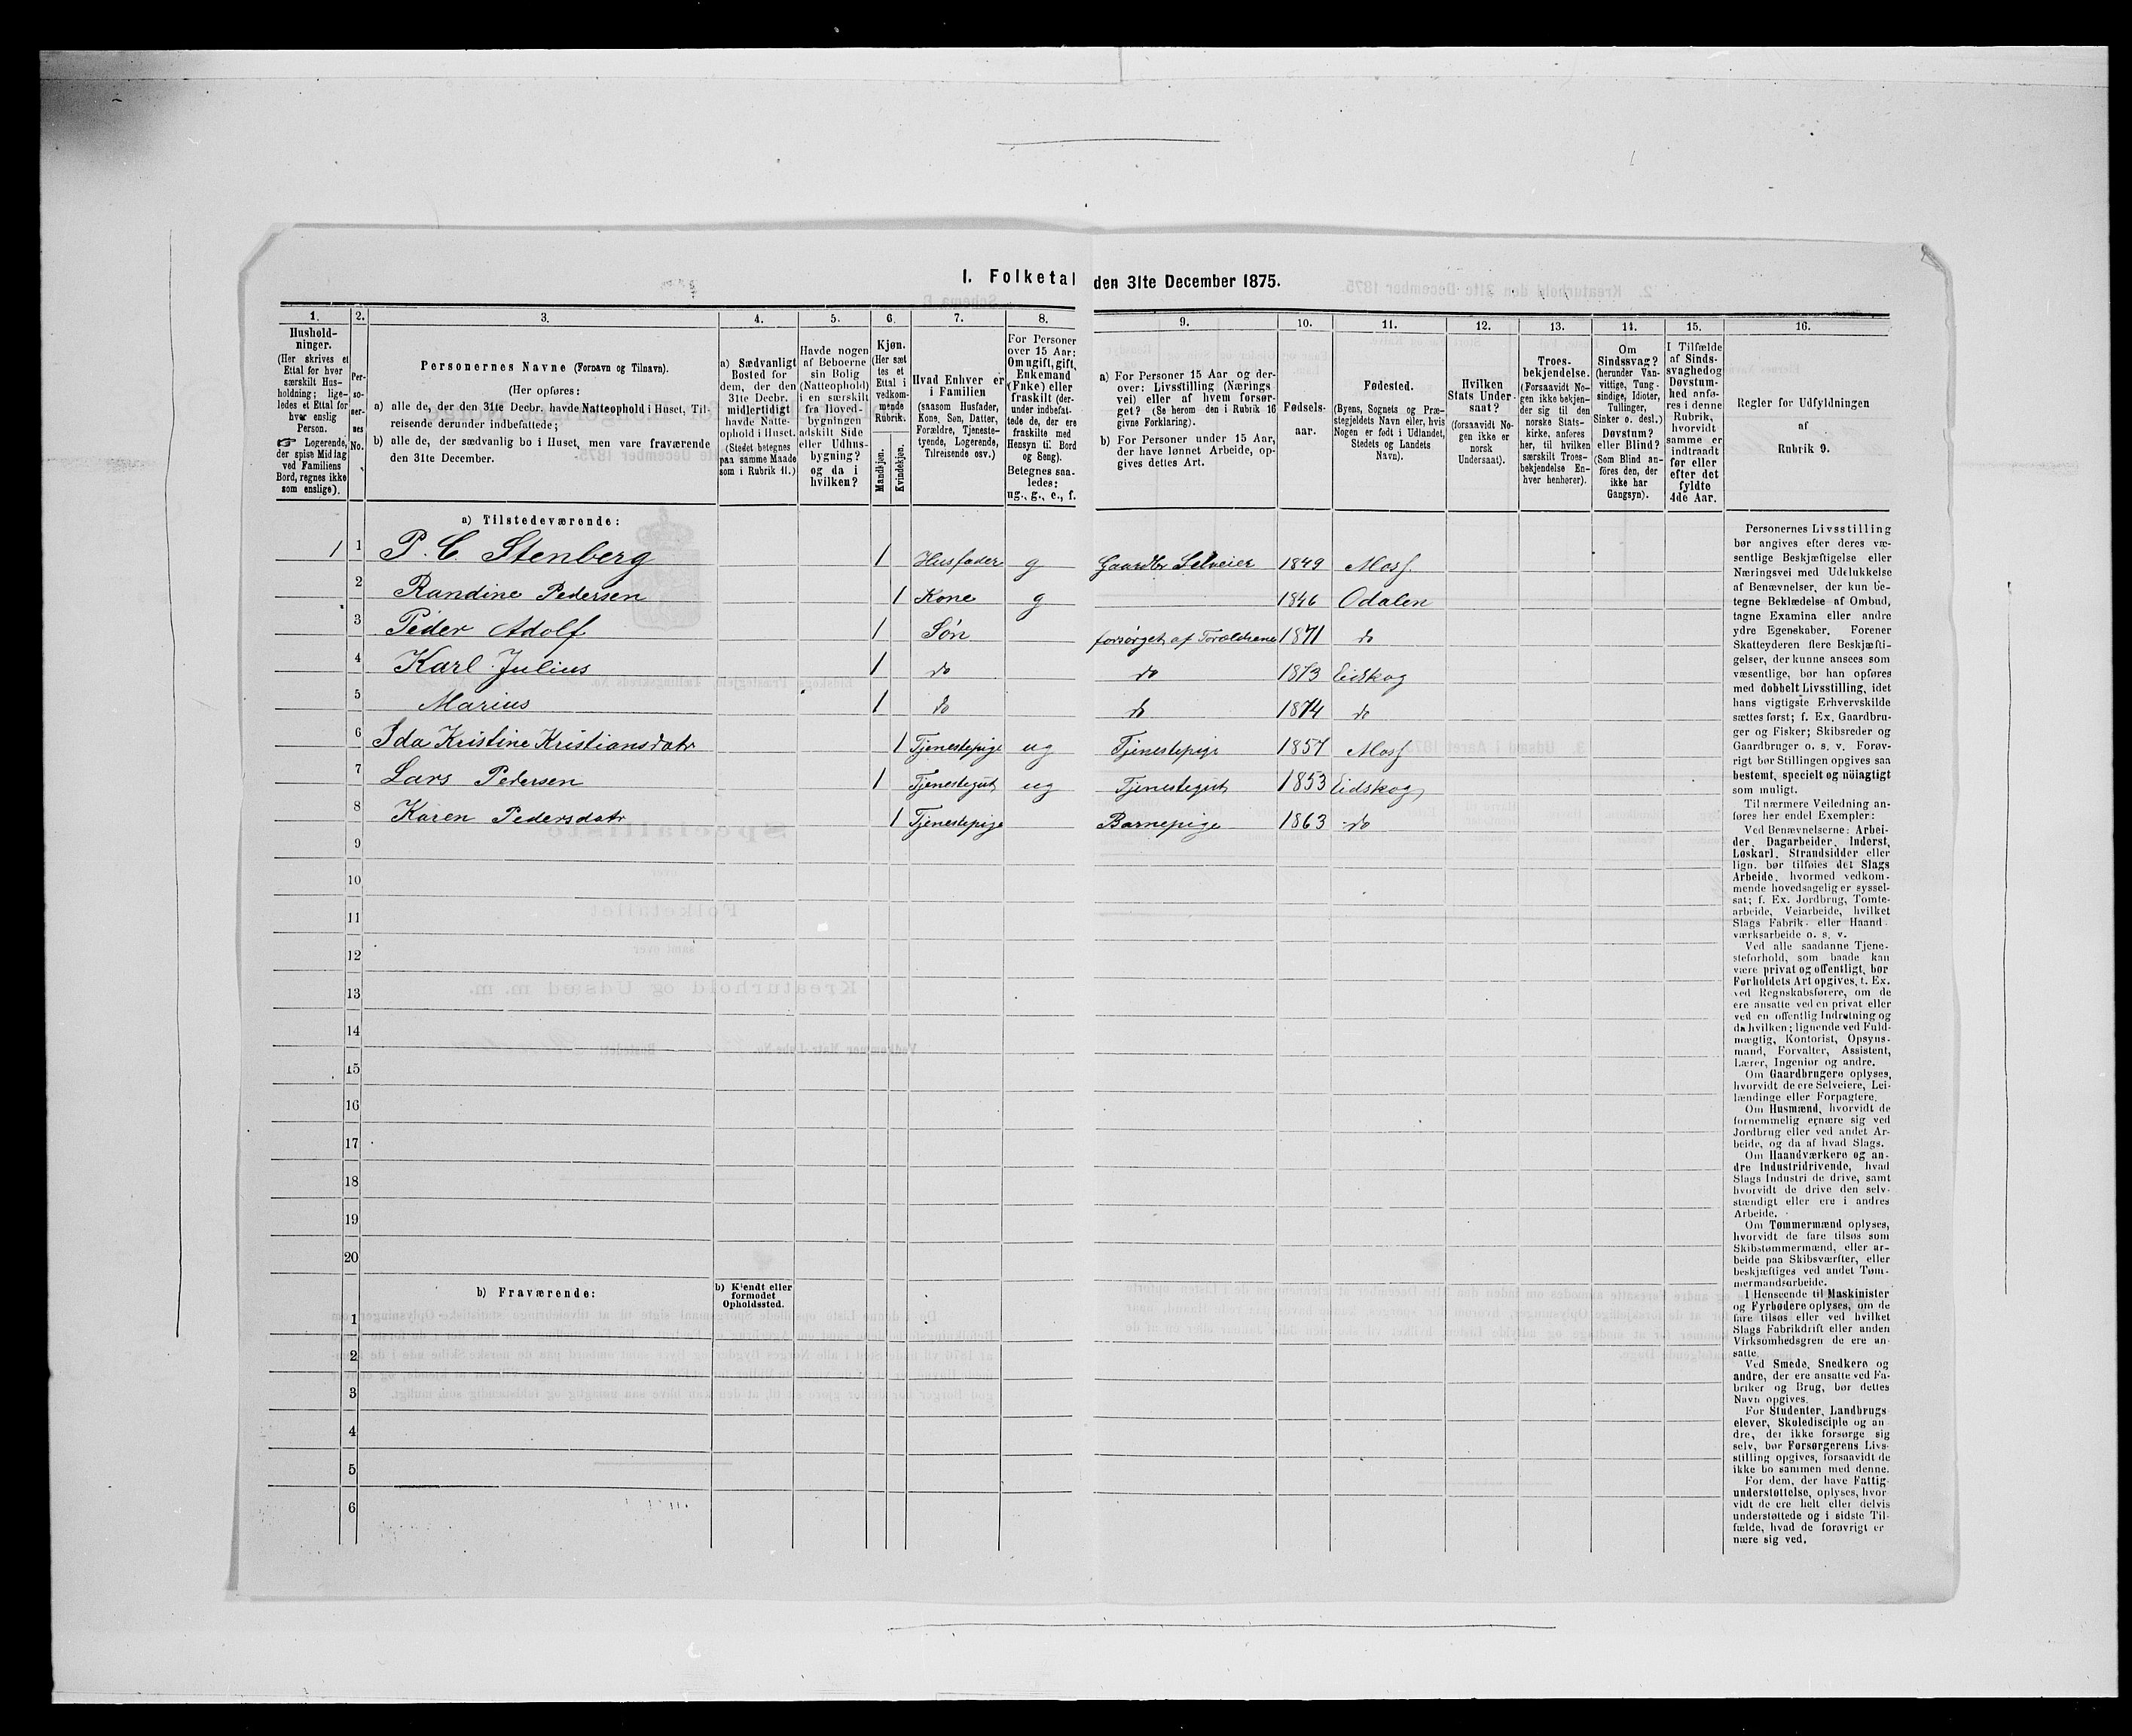 I. Folketal den 31te December 1875.
1. 2. 3. 4. 5. 6. 7. 8. 9. 10. 11. 12. 13. 14. 15. 16.
Hushold-
ninger.
(Her skrives et
Ettal for hver
særskilt Hus-
holdning; lige-
ledes et Ettal for
hver enslig
Person.
☞ Logerende,
der spise Middag
ved Familiens
Bord, regnes ikke
som enslige).
Per-
so-
ner-
nes
No.
Personernes Navne (Fornavn og Tilnavn).
(Her opføres:
a) alle de, der den 31te Decbr. havde Natteophold i Huset, Til-
reisende derunder indbefattede;
b) alle de, der sædvanlig bo i Huset, men vare fraværende
den 31te December.
a) Sædvanligt
Bosted for
dem, der den
31te Decbr.
midlertidigt
havde Natte-
ophold i Huset.
(Stedet betegnes
paa samme Maade
som i Rubrik 11.)
Havde nogen
af Beboerne
sin Bolig
(Natteophold)
i en særskilt
fra Hoved-
bygningen
adskilt Side
eller Udhus-
bygning?
og da i
hvilken?
Kjøn.
(Her sæt
tes et
Ettal i
vedkom-
mende
Rubrik.
Mandkjøn.
Kvindekjøn.
Hvad Enhver er
i Familien
(saasom Husfader,
Kone, Søn, Datter,
Forældre, Tjeneste-
tyende, Logerende,
Tilreisende osv.)
For Personer
over 15 Aar:
Om ugift, gift,
Enkemand
(Enke) eller
fraskilt (der-
under indbefat-
tede de, der ere
fraskilte med
Hensyn til Bord
og Seng).
Betegnes saa-
ledes:
ug., g., e., f.
a) For Personer 15 Aar og der-
over: Livsstilling (Nærings
vei) eller af hvem forsør-
get? (Se herom den i Rubrik 16
givne Forklaring).
b) For Personer under 15 Aar,
der have lønnet Arbeide, op-
gives dettes Art.
Fødsels-
aar.
Fødested.
(Byens, Sognets og Præ-
stegjeldets Navn eller, hvis
Nogen er født i Udlandet,
Stedets og Landets
Navn).
Hvilken
Stats Under-
saat?
(forsaavidt No-
gen ikke er
norsk
Undersaat).
Troes-
bekjendelse.
(Forsaavidt No-
gen ikke bekjen-
der sig til den
norske Stats-
kirke, anføres
her, til hvilken
særskilt Troes-
bekjendelse En-
hver henhører).
Om
Sindssvag?
(herunder Van-
vittige, Tung-
sindige, Idioter,
Tullinger,
Sinker o. desl.)
Døvstum?
eller Blind?
(Som Blind an-
føres den, der
ikke har
Gangsyn).
I Tilfælde
af Sinds-
svaghed og
Døvstum-
hed anfø-
res i denne
Rubrik,
hvorvidt
samme er
indtraadt
før eller
efter det
fyldte
4de Aar.
Regler for Udfyldningen
af
Rubrik 9.
a) Tilstedeværende:
1 1 P. C. Stenberg 1 Husfader g Gaardbr Selveier 1849 Moss
2 Randine Pedersen 1 Kone g 1846 Odalen
3 Peder Adolf 1 Søn forsørget af Forældrene 1871 do
4 Karl Julius 1 do do 1873 Eidskog
5 Marius 1 do do 1874 do
6 Ida Kristine Kristiansdatr 1 Tjenestepige ug Tjenestepige 1857 Moss
7 Lars Pedersen 1 Tjenestegut ug Tjenestegut 1853 Eidskog
8 Karen Pedersdatr 1 Tjenestepige Barnepige 1863 do
9
10
11
12
13
14
15
16
17
18
19
20
b) Fraværende:
b) Kjendt eller
formodet
Opholdssted.
1
2
3
4
5
6
Personernes Livsstilling
bør angives efter deres væ-
sentlige Beskjæftigelse eller
Næringsvei med Udelukkelse
af Benævnelser, der kun be-
tegne Beklædelse af Ombud,
tagne Examina eller andre
ydre Egenskaber. Forener
Skatteyderen flere Beskjæfti-
gelser, der kunne ansees som
væsentlige, bør han opføres
med dobbelt Livsstilling, idet
hans vigtigste Erhvervskilde
sættes først; f. Ex. Gaardbru-
ger og Fisker; Skibsreder og
Gaardbruger o. s. v. Forøv-
rigt bør Stillingen opgives saa
bestemt, specielt og nöiagtigt
som muligt.
Til nærmere Veiledning an-
føres her endel Exempler:
Ved Benævnelserne: Arbei-
der, Dagarbeider, Inderst,
Løskarl, Strandsidder eller
lign. bør tilføies det Slags
Arbeide, hvormed vedkom-
mende hovedsagelig er syssel-
sat; f. Ex. Jordbrug, Tomte-
arbeide, Veiarbeide, hvilket
Slags Fabrik- eller Haand-
værksarbeide o. s. v.
Ved alle saadanne Tjene-
steforhold, som baade kan
være privat og offentligt, bør
Forholdets Art opgives, t. Ex.
ved Regnskabsførere, om de
ere ansatte ved en privat eller
ved en offentlig Indretning og
da hvilken; lignende ved Fuld-
mægtig, Kontorist, Opsyns-
mand, Forvalter, Assistent,
Lærer, Ingeniør og andre.
Om Gaardbrugere oplyses,
hvorvidt de ere Selveiere, Lei-
lændinge eller Forpagtere.
Om Husmænd, hvorvidt de
fornemmelig ernære sig ved
Jordbrug eller ved andet Ar-
beide, og da af hvad Slags.
Om Haandværkere og an-
dre Industridrivende, hvad
Slags Industri de drive, samt
hvorvidt de drive den selv-
stændigt eller ere i andres
Arbeide.
Om Tømmermænd oplyses,
hvorvidt de fare tilsøs som
Skibstømmermænd, eller ar-
beide paa Skibsværfter, eller
beskjæftiges ved andet Tøm-
mermandsarbeide.
I Henseende til Maskinister
og Fyrbødere oplyses, om de
fare tilsøs eller ved hvilket
Slags Fabrikdrift eller anden
Virksomhedsgren de ere an-
satte.
Ved Smede, Snedkere og
andre, der ere ansatte ved Fa-
briker og Brug, bør dettes
Navn opgives.
For Studenter, Landbrugs
elever, Skoledisciple og an
dre, der ikke forsørge sig
selv, bør Forsørgerens Livs-
stilling opgives, forsaavidt de
ikke bo sammen med denne.
For dem, der have Fattig
understøttelse, oplyses, hvor
vidt de ere helt eller delvis
understøttede og i sidste Til-
fælde, hvad de forøvrigt er
nære sig ved.